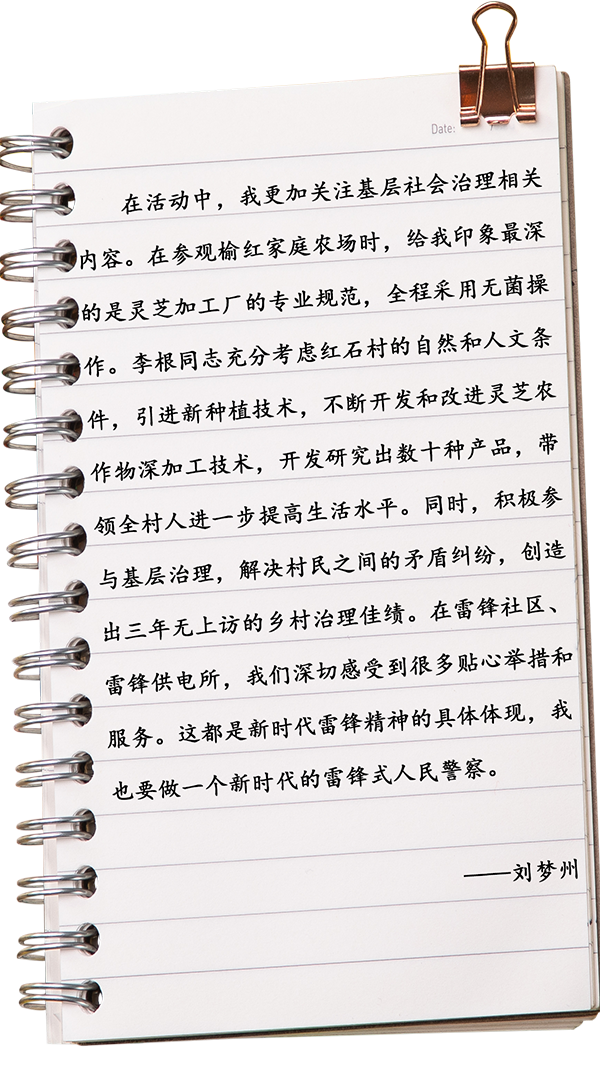 Date:
在活动中，我更加关注基层社会治理相关
内容。在参观榆红家庭农场时，给我印象最深
的是灵芝加工厂的专业规范，全程采用无菌操
作。李根同志充分考虑红石村的自然和人文条
件，引进新种植技术，不断开发和改进灵芝农
作物深加工技术，开发研究出数十种产品，带
领全村人进一步提高生活水平。同时，积极参
与基层治理，解决村民之间的矛盾纠纷，创造
出三年无上访的乡村治理佳绩。在雷锋社区、
雷锋供电所，我们深切感受到很多贴心举措和
服务。这都是新时代雷锋精神的具体体现，我
也要做一个新时代的雷锋式人民警察。
——刘梦州